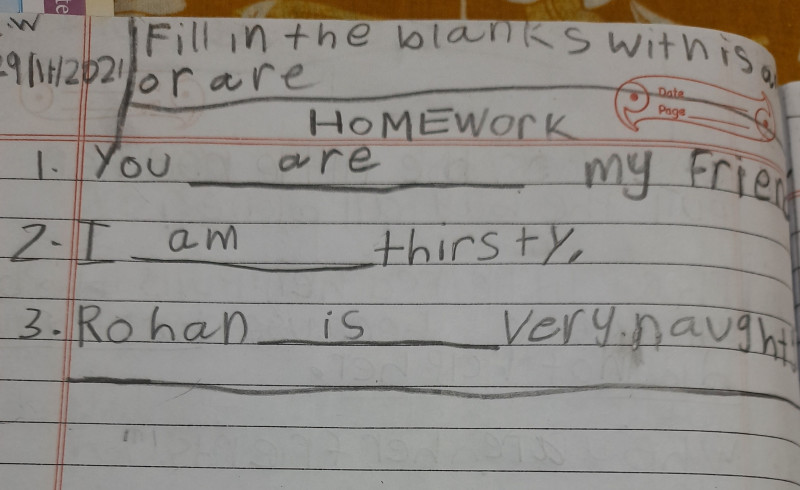 W
Fill in the blanks with is a
29/11/2021 or are
Date
HOMEWORK
Page
1. You are my Frien
2. I am thirsty.
3. Rohan is very naught